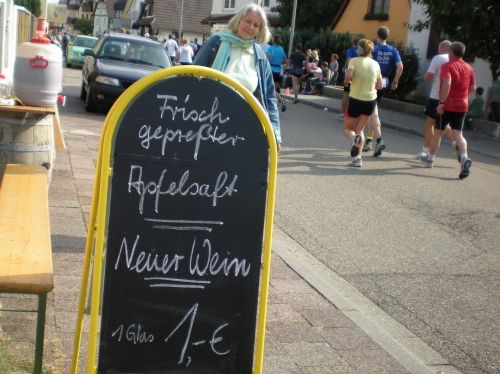 Frisch
gepreßter
Apfelsaft
Neuer Wein
1 Glas 1,-€